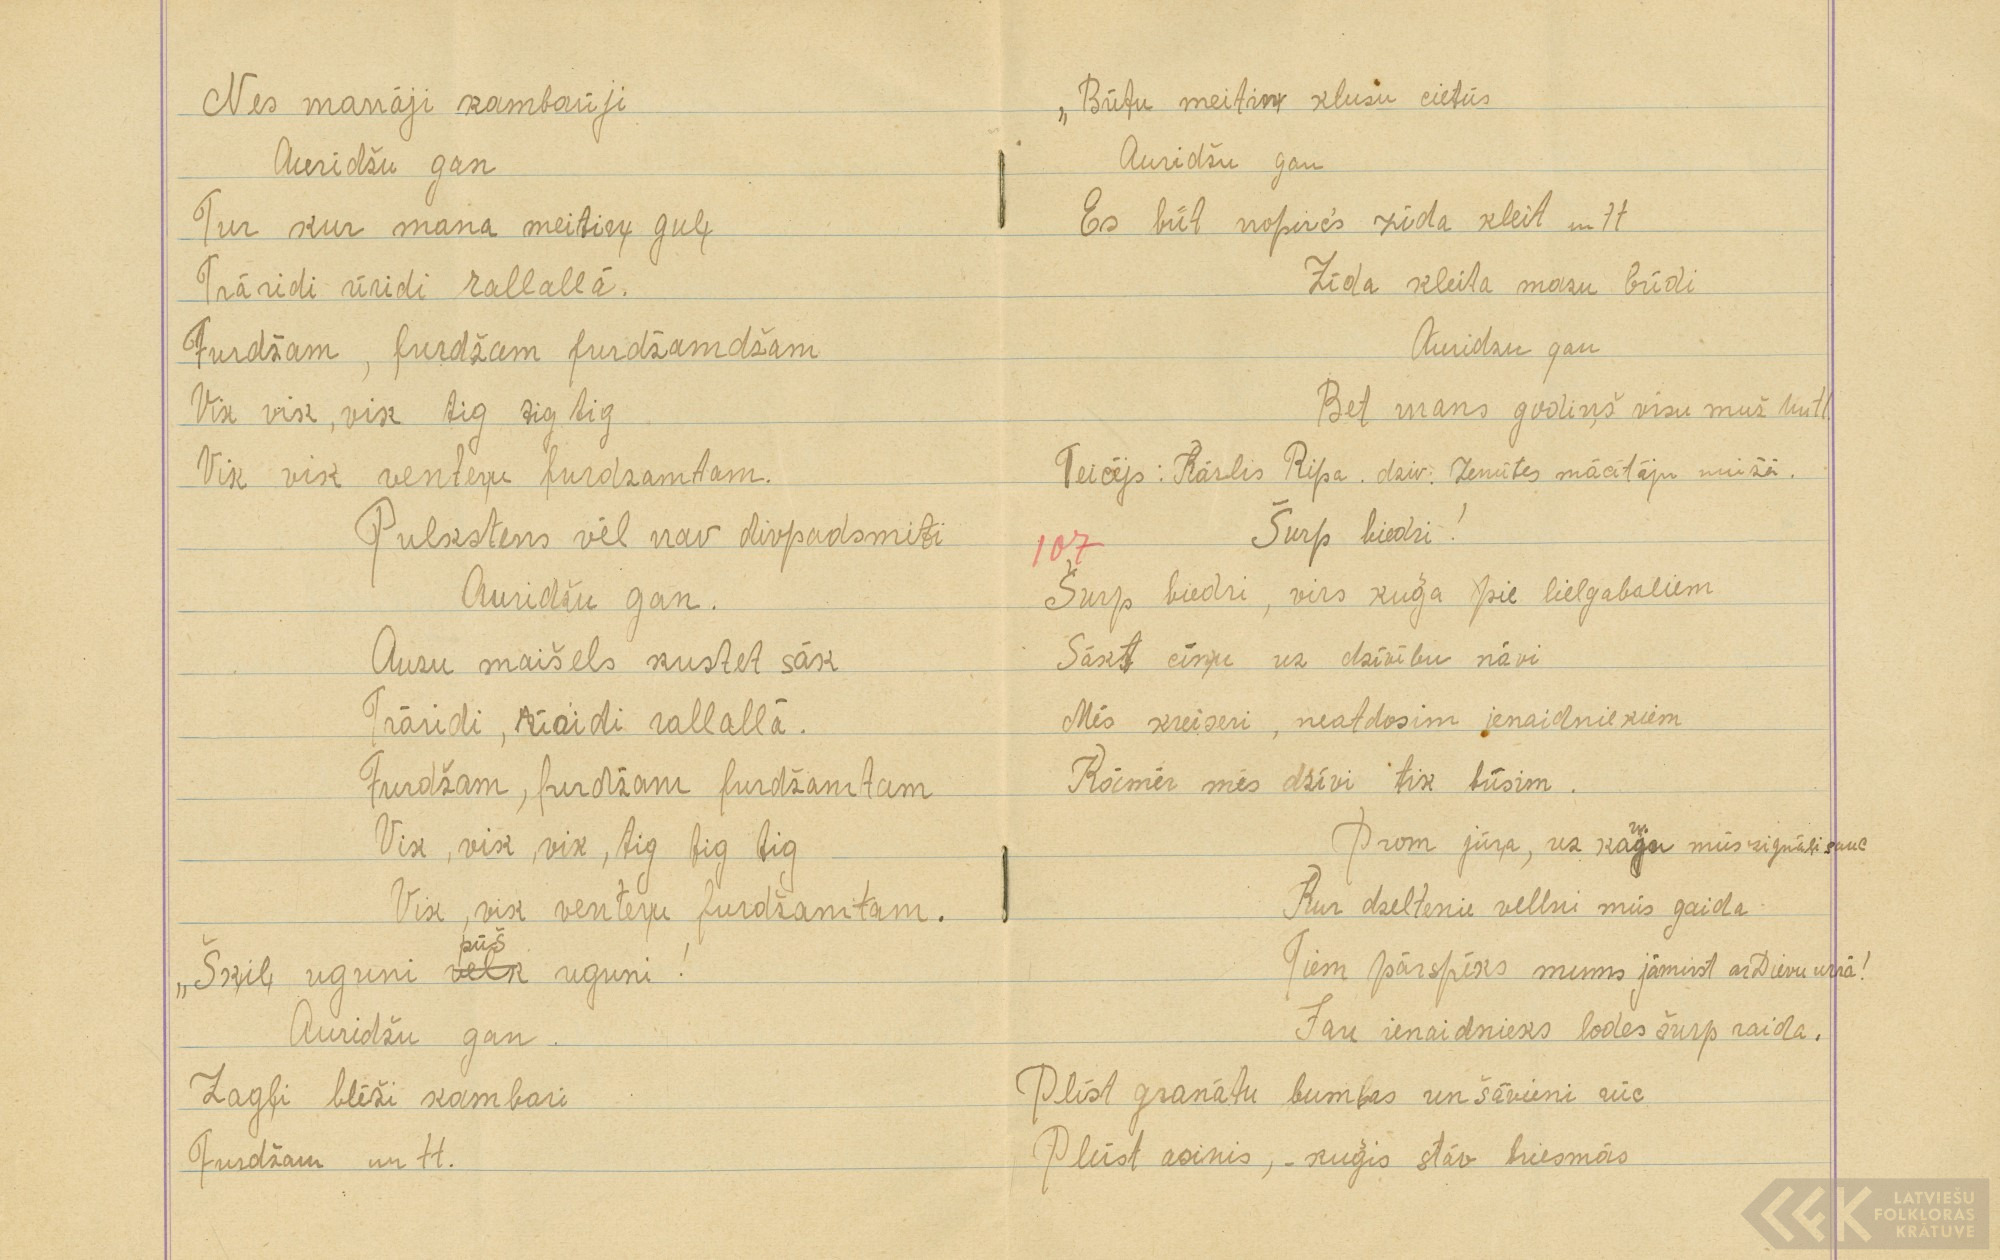 Nes manāji kambarīji
Auridžu gan
Tur kur mana meitiņ guļ
Trāridi ūridi rallallā.
Furdžam, furdžam furdžamdžam
Vik vik, vik tig tig tig
Vik vik venteŗu furdzamtam.
Pulkstens vēl nav divpadsmiti
Auridžu gan.
Auzu maišels kustet sāk
Trāridi, rīaidi rallallā.
Furdžam, furdžam furdžamtam
Vik, vik, vik, tig tig tig
Vik, vik venteŗu furdžamtam.
pūš
„Šķiļ uguni velk uguni!
Auridžu gan.
Zagļi blēži kambari
Furdžam un tt.
„Būtu meitiņ klusu cietūs
Auridžu gan
Es būt nopircs zīda kleit un tt
Zīda kleita mazu brīdi
Auridzu gan
Bet mans godiņš visu muž
Teicējs: Kārlis Ripa. dzīv: Zemītes mācītāju muižā.
Šurp biedri!
107
Šurp biedri, virs kuģa pie lielgabaliem
Sākt cīņu uz dzīvību nāvi
Mēs kreiseri, neatdosim ienaidniekiem
Kāmēr mēs dzīvi tik būsim.
Prom jūŗa, uz mūs signāli sauc
Kur dzeltenie vellni mūs gaida
Tiem pārspēks mums jāmirst ar Dievu urrā!
Jau ienaidnieks lodes šurp raida.
Plīst granātu bumbas un šāvieni rūc
Plūst asinis, - kuģis stāv briesmās
LATVIEŠU
FOLKLORAS
KRĀTUVE